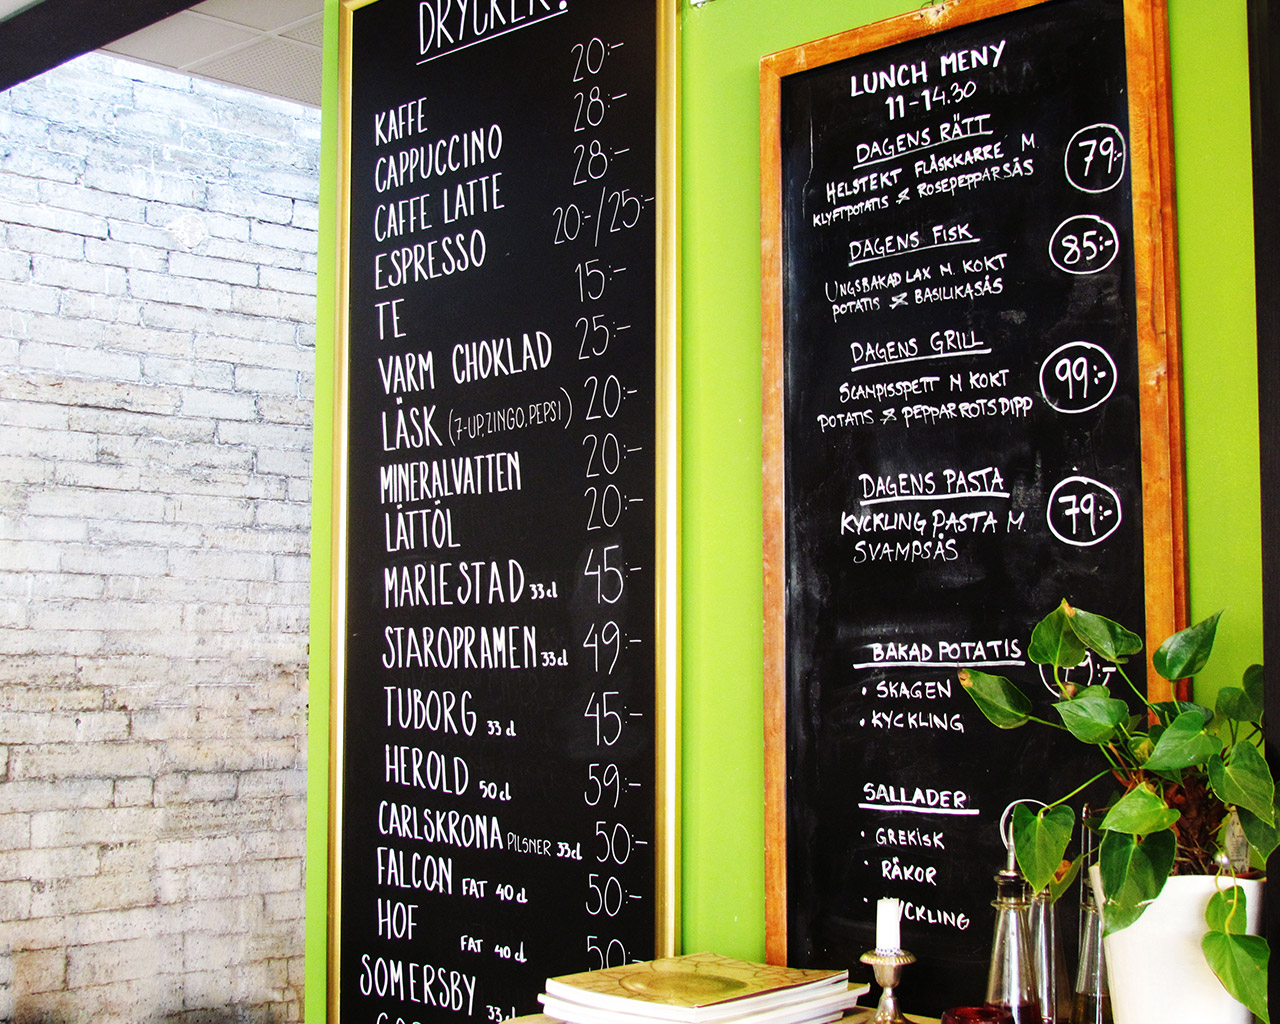 DRYCKER!
KAFFE 20:-
CAPPUCCINO 28:-
CAFFE LATTE 28:-
ESPRESSO 20:-/25:-
TE 15:-
VARM CHOKLAD 25:-
LÄSK (7-UP, ZINGO, PEPSI) 20:-
MINERALVATTEN 20:-
LÄTTÖL 20:-
MARIESTAD 33 cl 45:-
STAROPRAMEN 33 cl 49:-
TUBORG 33 cl 45:-
HEROLD 50 cl 59:-
CARLSKRONA PILSNER 33 cl 50:-
FALCON FAT 40 cl 50:-
HOF FAT 40 cl 50:-
SOMERSBY 33 cl
LUNCH MENY
11-14.30
DAGENS RÄTT
HELSTEKT FLÄSKKARRE M. 79:-
KLYFTPOTATIS & ROSEPEPPARSÅS
DAGENS FISK
UNGSBAKAD LAX M. KOKT 85:-
POTATIS & BASILIKASÅS
DAGENS GRILL
SCANPISSPETT M KOKT 99:-
POTATIS & PEPPARROTSDIPP
DAGENS PASTA
KYCKLING PASTA M. 79:-
SVAMPSÅS
BAKAD POTATIS
• SKAGEN
• KYCKLING
SALLADER
• GREKISK
• RÄKOR
• KYCKLING